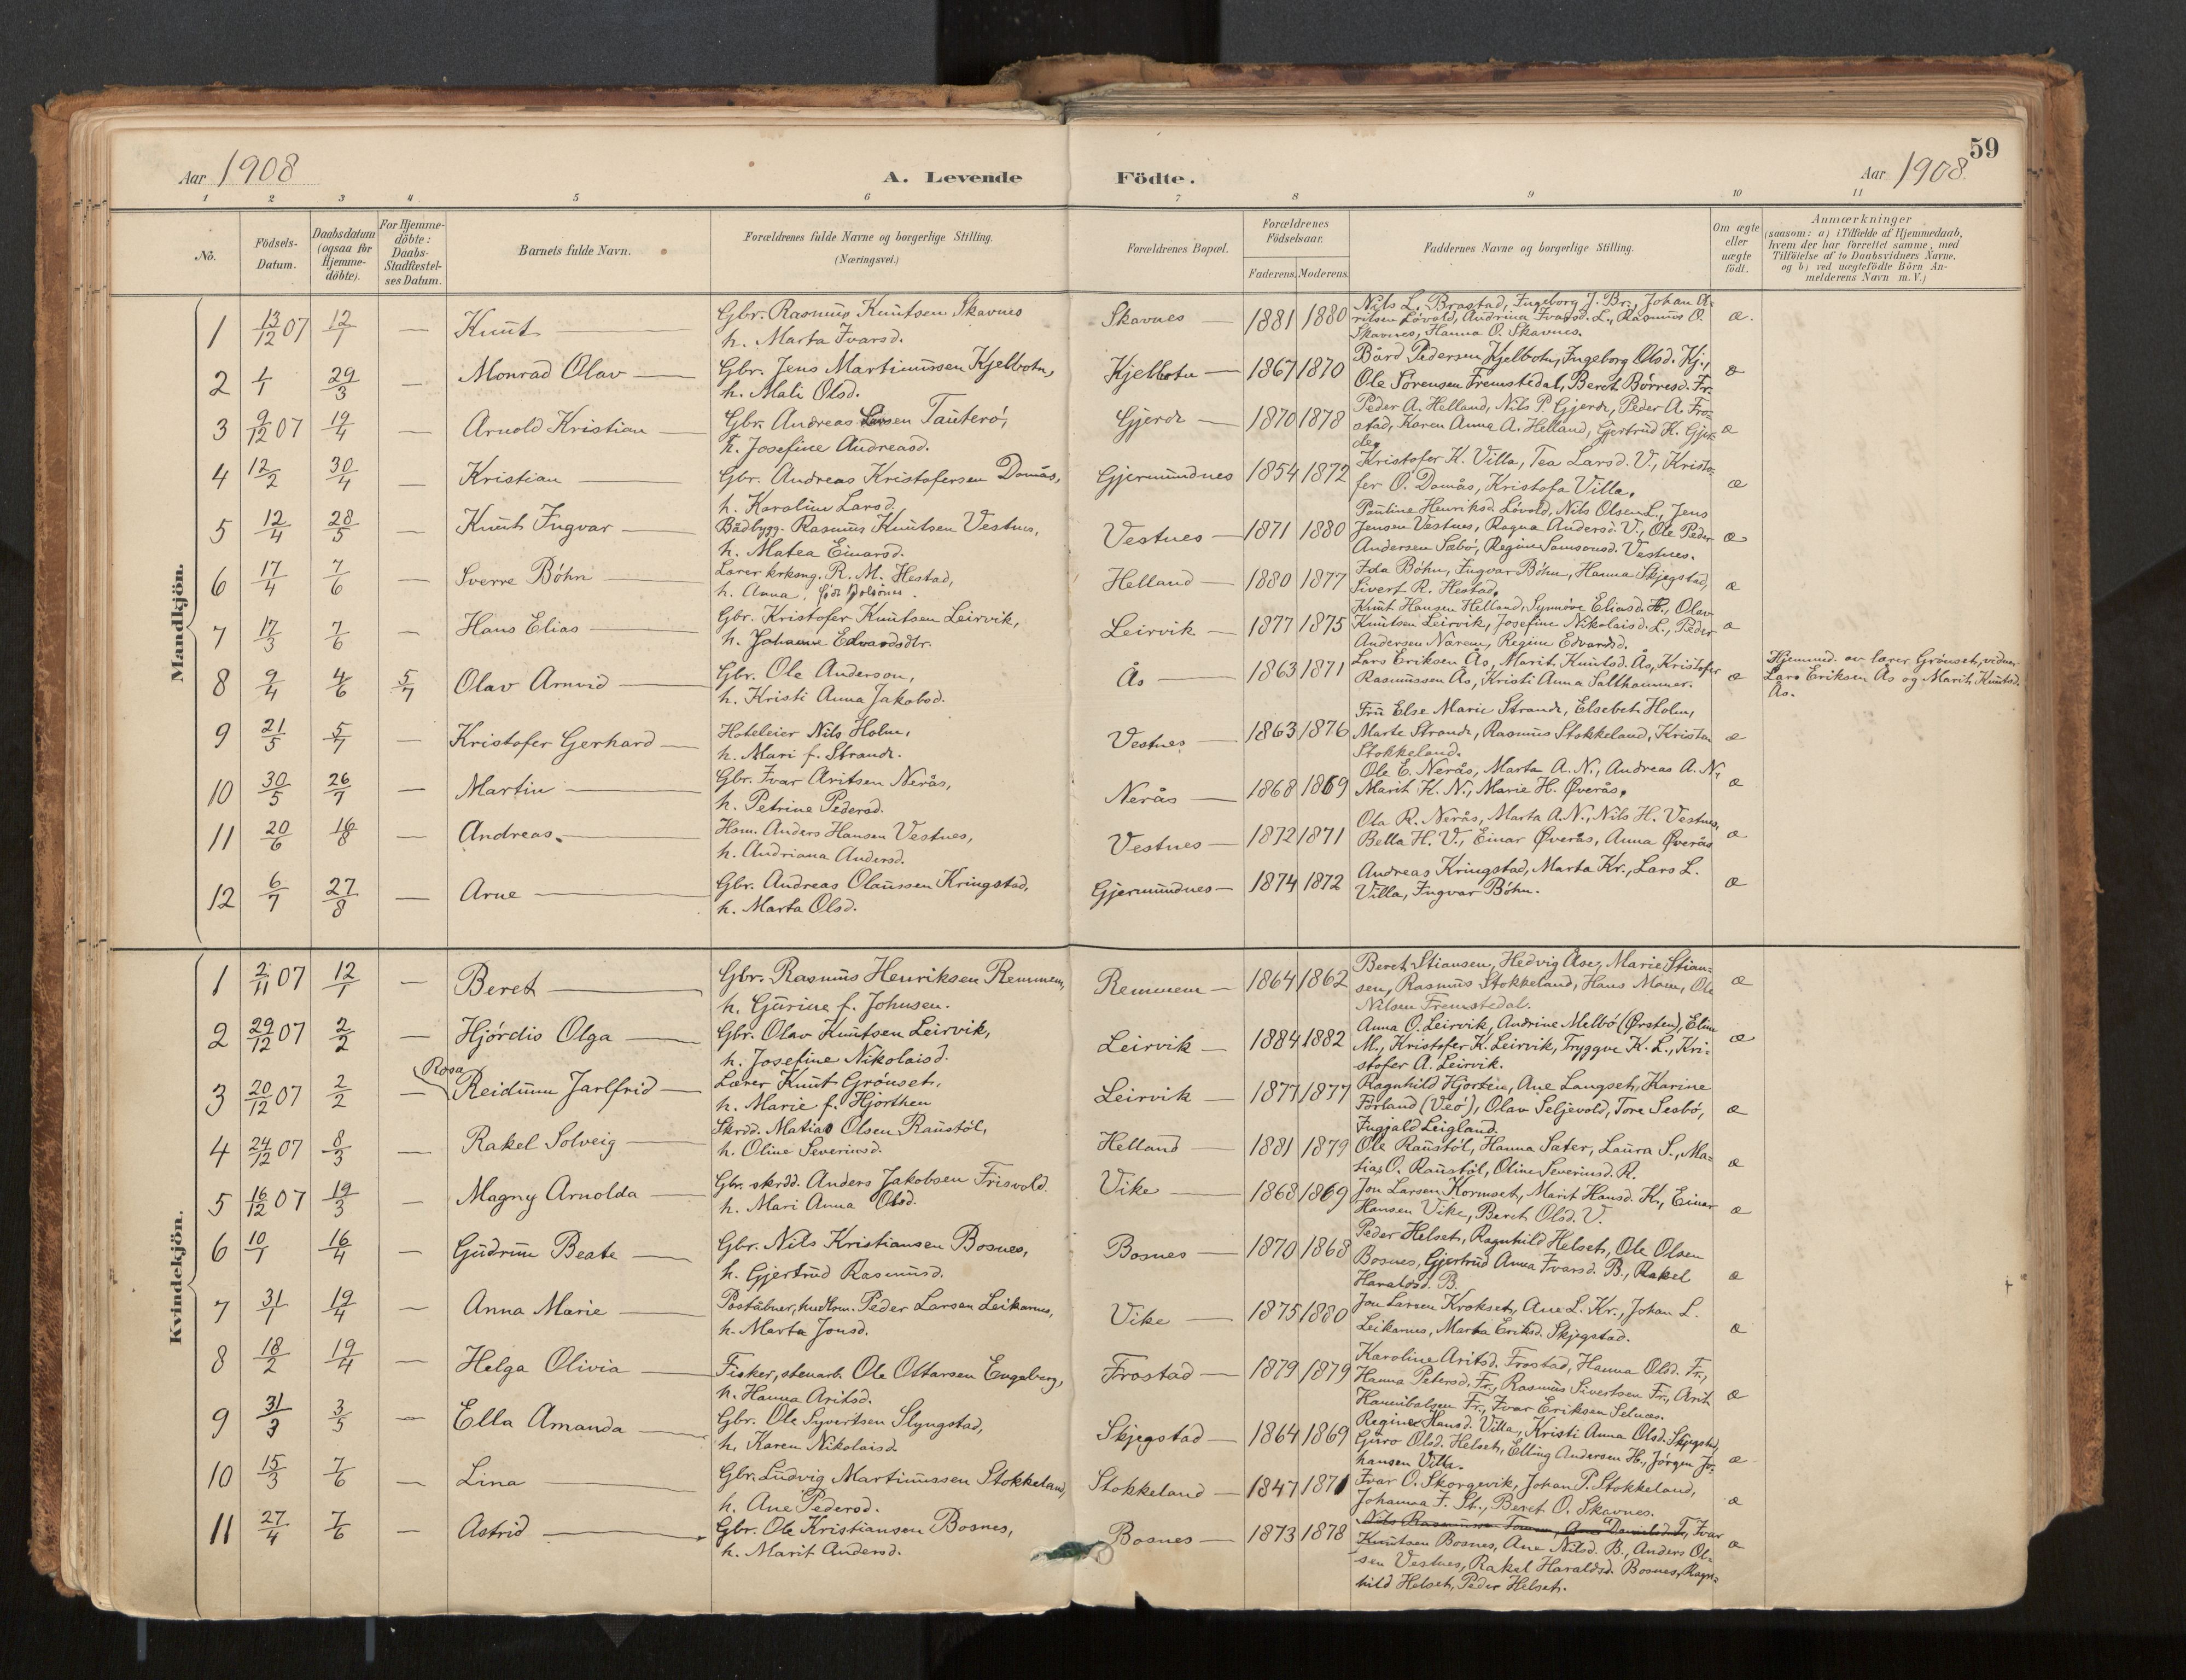 59
Aar 1908
A. Levende Födte.
Aar 1908
1 2 3 4 5 6 7 8 9 10 11
No. Födsels-Datum. Daabsdatum (ogsaa for Hjemme-döbte). For Hjemme-döbte: Daabs-Stadfæstel-ses Datum. Barnets fulde Navn. Forældrenes fulde Navne og borgerlige Stilling. (Næringsvei.) Forældrenes Bopæl. Forældrenes Födselsaar. Faderens. Moderens. Faddernes Navne og borgerlige Stilling. Om ægte eller uægte födt. Anmærkninger (saasom: a) i Tilfælde af Hjemmedaab, hvem der har forrettet samme, med Tilföielse af to Daabsvidners Navne. og b) ved uægtefödte Börn Anmelderens Navn m.V.)
Mandkjön.
1 13/12 07 12/1 — Knut — Gbr. Rasmus Knutsen Skavnes
h. Marta Ivarsd. Skavnes — 1881 1880 Nils L. Brastad, Ingeborg J. Br., Johan A-
ritsen Lövold, Andrina Ivarsd. L., Rasmus O.
Skavnes, Hanna O. Skavnes. æ.
2 1/1 29/3 — Monrad Olav — Gbr. Jens Martinussen Kjelbotn,
h. Mali Olsd. Kjelbotn — 1867 1870 Bård Pedersen Kjelbotn, Ingeborg Olsd. Kj.,
Ole Sörensen Fremstedal, Beret Börresd. Fr. æ
3 9/12 07 19/4 — Arnold Kristian — Gbr. Andreas Larsen Tauterö,
h. Josefine Andreasd. Gjerde — 1870 1878 Peder A. Helland, Nils P. Gjerde, Peder A. Fro-
stad, Karen Anna A. Helland, Gjertrud K. Gjer-
de. æ
4 12/2 30/4 — Kristian — Gbr. Andreas Kristofersen Domås,
h. Karoline Larsd. Gjermundnes 1854 1872 Kristofer K. Villa, Tea Larsd. V., Kristo-
fer O. Domås, Kristofa Villa. æ
5 12/4 28/5 — Knut Ingvar — Bådbygg. Rasmus Knutsen Vestnes,
h. Matea Einarsd. Vestnes — 1871 1880 Pauline Henriksd. Lövold, Nils Olsen L., Jens
Jensen Vestnes, Ragna Andersd. V., Ole Peder
Andersen Sæbö, Regine Samsonsd. Vestnes. æ
6 17/4 7/6 — Sverre Böhn — Lærer krksng. R. M. Hestad,
h. Anna, föd Helland — 1880 1877 Ida Böhn, Ingvar Böhn, Hanna Skjegstad,
Sivert R. Hestad. æ
7 17/3 7/6 — Hans Elias — Gbr. Kristofer Knutsen Leirvik,
h. Johanne Edvardsdtr. Leirvik — 1877 1875 Knut Hansen Helland, Synnöve Eliasd. H., Olav
Knutsen Leirvik, Josefine Nikolaisd. L., Peder
Andersen Nærem, Regine Edvardsd. æ
8 9/4 4/6 5/7 Olav Arnvid — Gbr. Ole Anderson,
h. Kristi Anna Jakobsd. Ås — 1863 1871 Lars Eriksen Ås, Marit Knutsd. Ås, Kristofer
Rasmussen Ås, Kristi Anna Salthammer. æ Hjemmed. av lærer Grönset, vidner
Lars Eriksen Ås og Marit Knutsd.
Ås.
9 21/5 5/7 — Kristofer Gerhard — Hoteleier Nils Holm,
h. Mari f. Strande. Vestnes — 1863 1876 Fru Else Marie Strande, Elsebet Holm,
Marte Strande, Rasmus Stokkeland, Kristen
Stokkeland. æ
10 30/5 26/7 — Martin — Gbr. Ivar Aritsen Nerås,
h. Petrine Pedersd. Nerås — 1868 1869 Ole E. Nerås, Marta A. N., Andreas A. N.,
Marit K. N., Marie H. Øverås. æ
11 20/6 16/8 — Andreas. — Hsm. Anders Hansen Vestnes,
h. Andriana Andersd. Vestnes — 1872 1871 Ola R. Nerås, Marta A. N., Nils H. Vestnes,
Bella H. V., Einar Øverås, Anna Øverås æ
12 6/7 27/8 — Arne — Gbr. Andreas Olaussen Kringstad,
h. Marta Olsd. Gjermundnes — 1874 1872 Andreas Kringstad, Marta Kr., Lars L.
Villa, Ingvar Böhn. æ
Kvindekjön.
1 2/11 07 12/1 — Beret — Gbr. Rasmus Henriksen Remmem,
h. Gurine f. Johnsen. Remmem — 1864 1862 Beret Stiansen, Hedvig Åse, Marie Stian-
sen, Rasmus Stokkeland, Hans Moen, Ole
Nilsen Fremstedal. æ
2 29/12 07 2/2 — Hjördis Olga — Gbr. Olav Knutsen Leirvik,
h. Josefine Nikolaisd. Leirvik — 1884 1882 Anna O. Leirvik, Andrine Melbö (Ørsten), Elin
M., Kristofer K. Leirvik, Tryggve K. L., Kri-
stofer A. Leirvik. æ
3 20/12 07 2/2 — Rosa Reidunn Jarlfrid — Lærer Knut Grönset,
h. Marie f. Hjorthen Leirvik — 1877 1877 Ragnhild Hjorten, Ane Langset, Karine
Förland (Veö), Olav Seljevold, Tore Sesbö,
Ingjald Leigland. æ
4 24/12 07 8/3 — Rakel Solveig — Skrdd. Matias Olsen Raustöl,
h. Oline Severinsd. Helland — 1881 1879 Ole Raustöl, Hanna Sater, Laura S., Ma-
tias O. Raustöl, Oline Severinsd. R. æ
5 16/12 07 19/3 — Magny Arnolda — Gbr. skrdd. Anders Jakobsen Frisvold.
h. Mari Anna Olsd. Vike — 1868 1869 Jon Larsen Kormset, Marit Hansd. K., Einar
Hansen Vike, Beret Olsd. V. æ
6 10/1 16/4 — Gudrun Beate — Gbr. Nils Kristiansen Bosnes,
h. Gjertrud Rasmusd. Bosnes — 1870 1868 Peder Helset, Ragnhild Helset, Ole Olsen
Bosnes, Gjertrud Anna Ivarsd. B., Rakel
Haraldsd. B. æ
7 31/1 19/4 — Anna Marie — Poståbner, hudlom. Peder Larsen Leikarnes,
h. Marta Jonsd. Vike — 1875 1880 Jon Larsen Krokset, Ane L. Kr., Johan L.
Leikarnes, Marta Eriksd. Skjegstad. æ
8 18/2 19/4 — Helga Olivia — Fisker, stenarb. Ole Ottarsen Engeberg,
h. Hanna Aritsd. Frostad — 1879 1879 Karoline Aritsd. Frostad, Hanna Olsd. Fr.,
Hanna Petersd. Fr., Rasmus Sivertsen Fr., Arit
Hannibalsen Fr., Ivar Eriksen Selnæs. æ
9 31/3 3/5 — Ella Amanda — Gbr. Ole Syvertsen Slyngstad,
h. Karen Nikolaisd. Skjegstad — 1864 1869 Regine Hansd. Villa, Kristi Anna Olsd. Skjegstad,
Guro Olsd. Helset, Elling Andersen H., Jörgen Jo-
hansen Villa. æ
10 15/3 7/6 — Lina — Gbr. Ludvig Martinussen Stokkeland,
h. Ane Pedersd. Stokkeland — 1847 1871 Ivar O. Skorgevik, Johan P. Stokkeland,
Johanna J. St., Beret O. Skavnes. æ
11 27/4 7/6 — Astrid — Gbr. Ole Kristiansen Bosnes,
h. Marit Andersd. Bosnes — 1873 1878 Nils Rasmussen Ane Danielsd. Ivar
Knutsen Bosnes, Ane Nilsd. B., Anders Ol-
sen Vestnes, Rakel Haraldsd. Bosnes, Ragn-
hild Helset, Peder Helset. æ